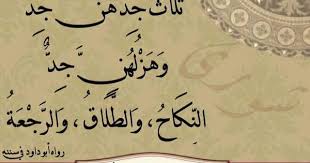 ثلاث جدهن جد
وَهَزْلُهُنَّ جِدٌّ
النِّكَاحُ، وَالطَّلَاقُ، وَالرَّجْعَةُ
رواه أبو داود في سننه